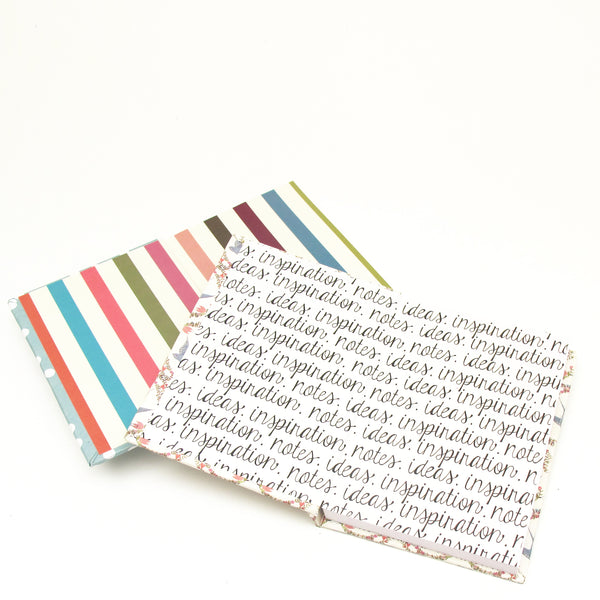 inspiration. notes. ideas. inspiration.
ideas. inspiration. notes. ideas. inspiration.
notes. ideas. inspiration. notes. ideas.
inspiration. notes. ideas. inspiration. notes.
ideas. inspiration. notes. ideas. inspiration.
notes. ideas. inspiration. notes. ideas.
inspiration. notes. ideas. inspiration. notes.
ideas. inspiration. notes. ideas. inspiration.
notes. ideas. inspiration. notes. ideas.
inspiration. notes. ideas. inspiration.
ideas. inspiration. notes. ideas. inspiration.
ideas. inspiration. notes.
inspiration. notes. ideas.